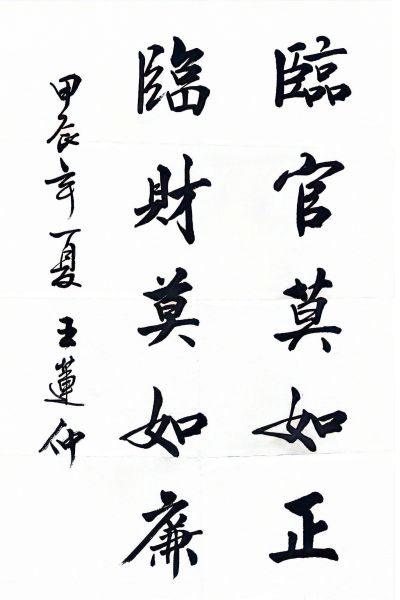 臨官莫如正
臨財莫如廉
甲辰年夏 王蓮仲